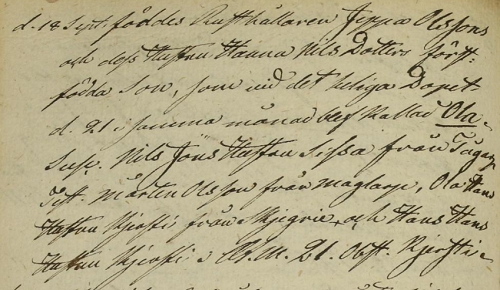 d. 18 Sept. föddes Rusthållaren Jeppa Olssons
och dess Hustru Hanna Nils Dotters först-
födda Son, som wid det heliga Dopet
d. 21 i samma månad blef kallad Ola.
Susc. Nils Jöns Hustru Sissa från
Test. Mårten Olsson från Maglarp, Ola Hans
Hustru Kjersti från Skjegrie, och Hans Hans
Hustru Kjersti i N. 21. Obst. Kjersti